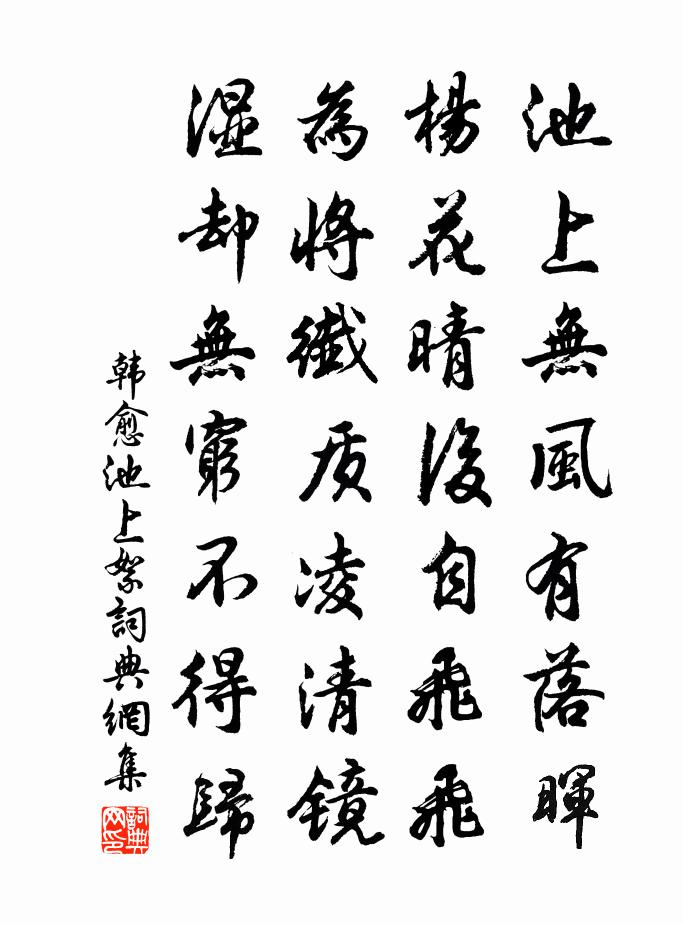 池上無風有落暉
楊花晴後自飛飛
為將纖质凌清镜
濕却無窮不得歸
韩愈池上絮詞典網集
詞典网印